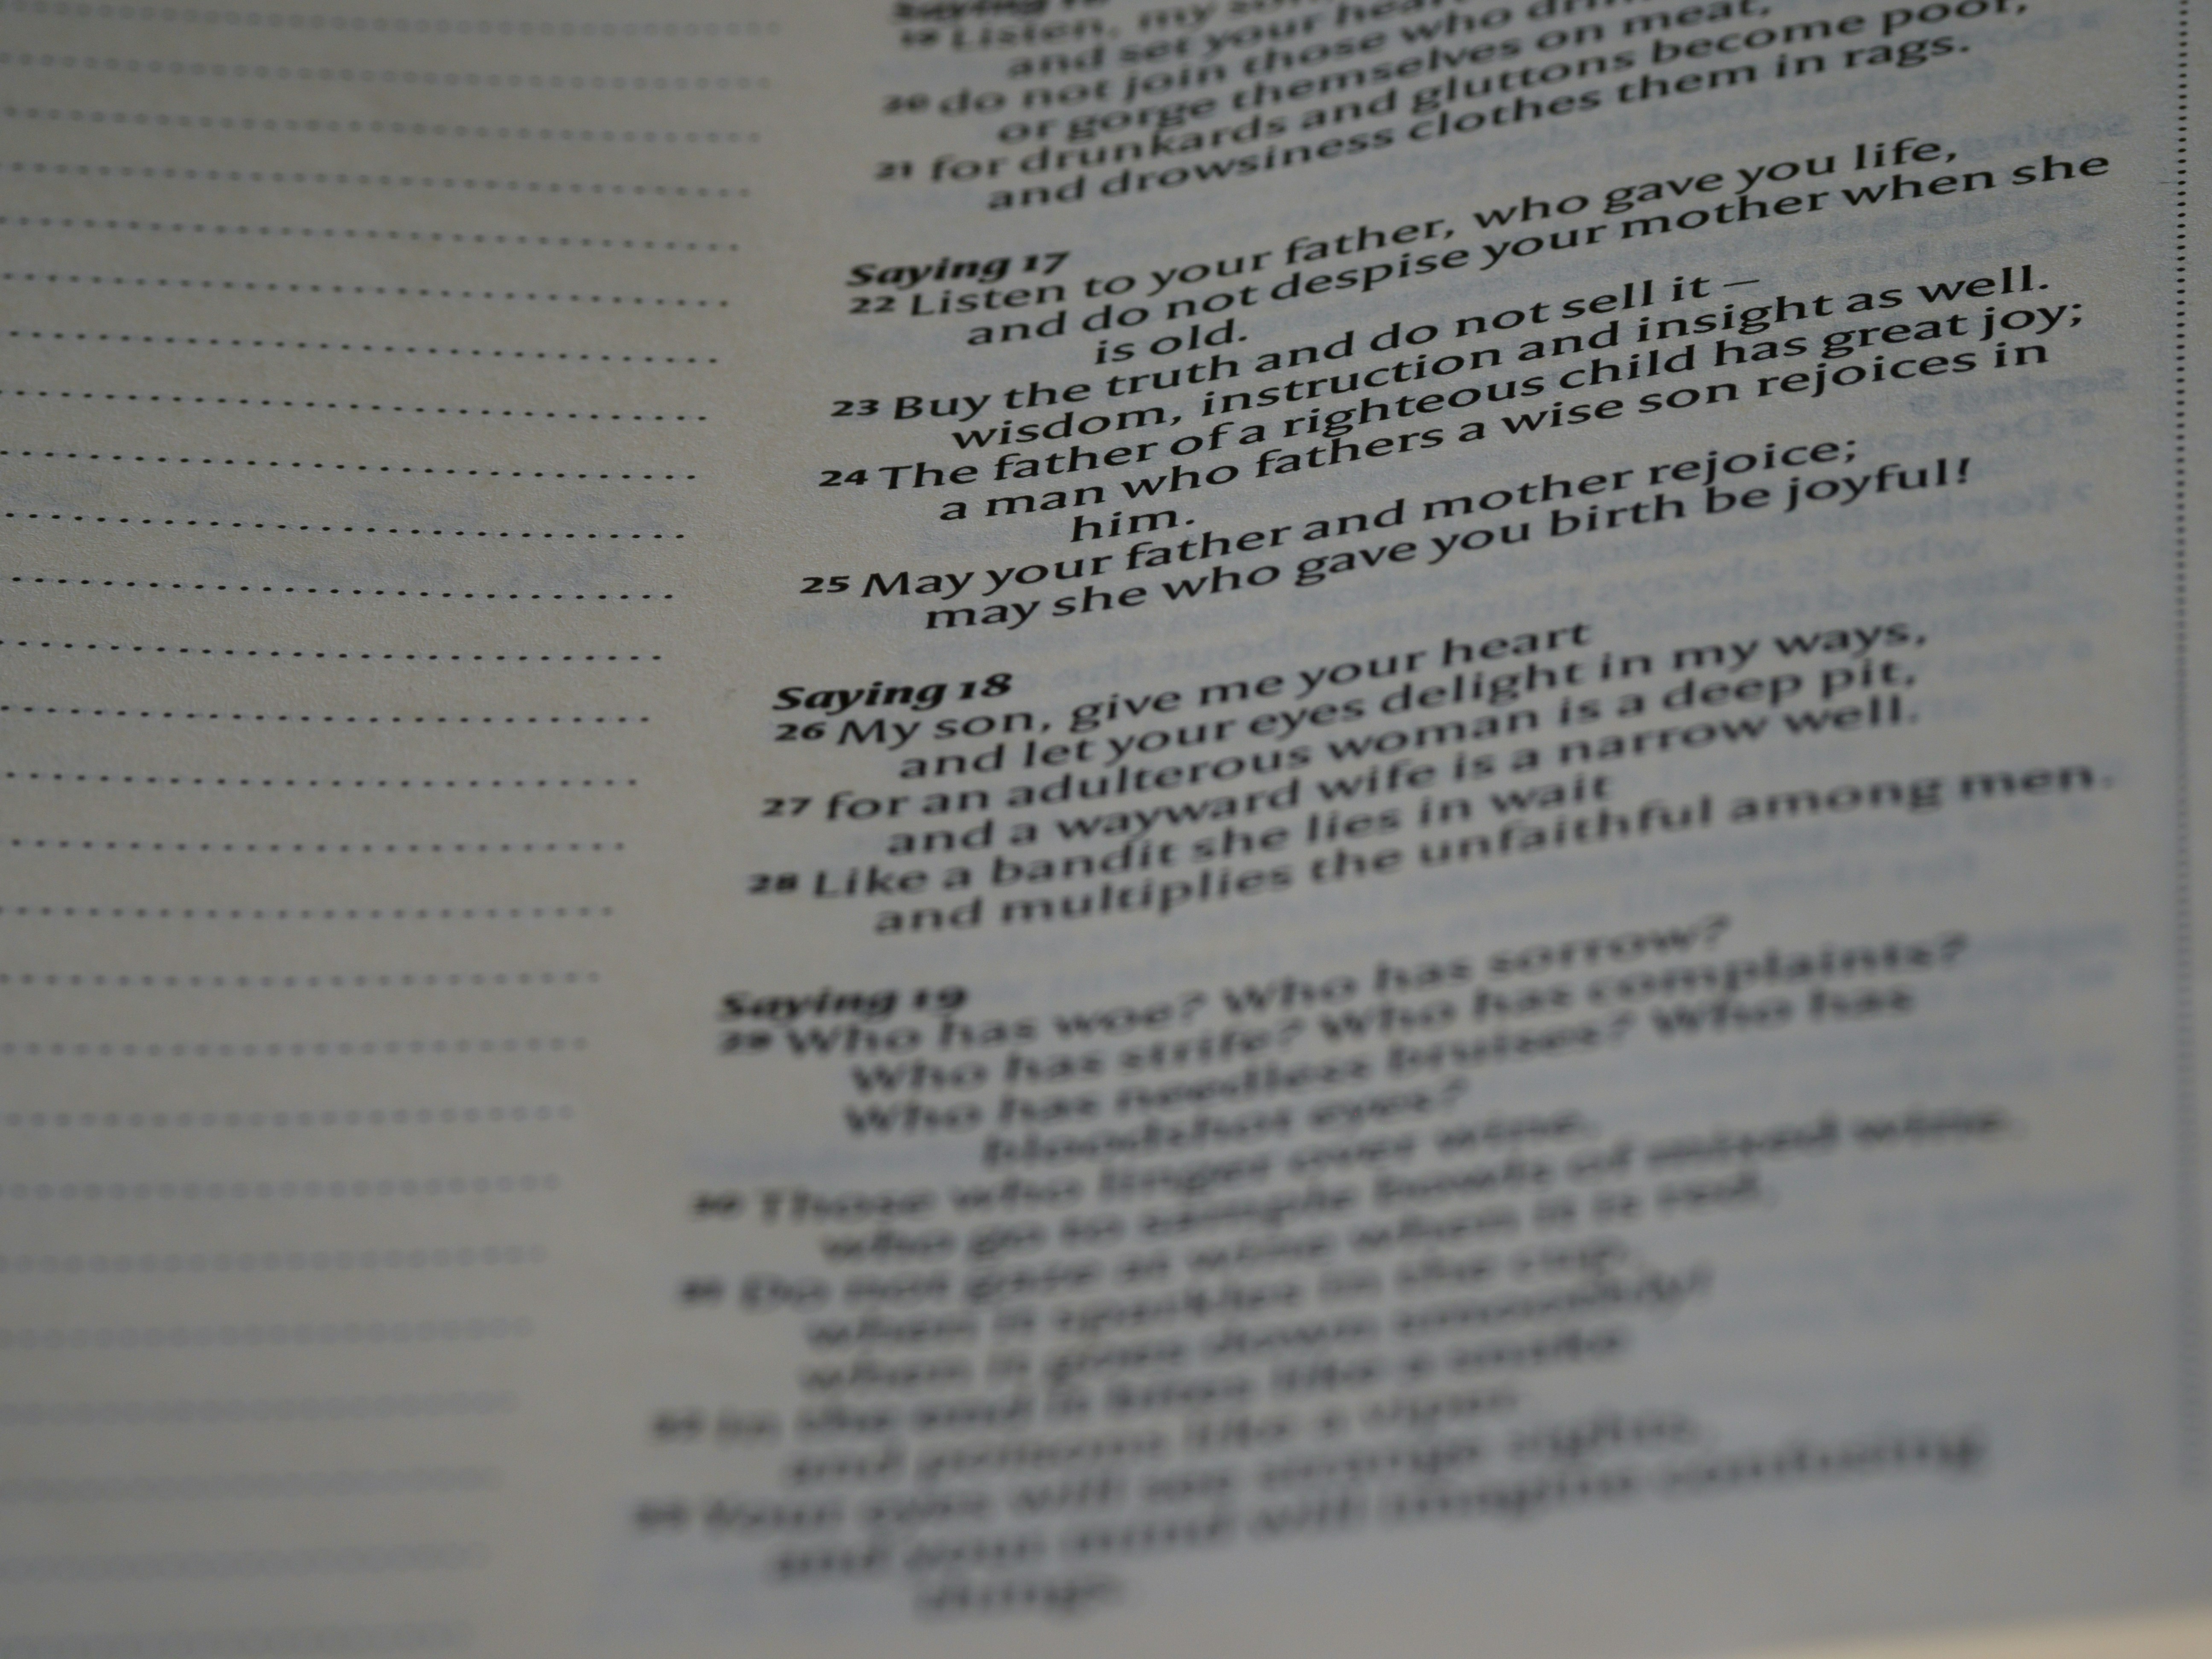 Saying 16
19 Listen, my son
and set your heart
20 do not join those who
or gorge themselves on meat,
21 for drunkards and gluttons become poor,
and drowsiness clothes them in rags.
Saying 17
22 Listen to your father, who gave you life,
and do not despise your mother when she
is old.
23 Buy the truth and do not sell it –
wisdom, instruction and insight as well.
24 The father of a righteous child has great joy;
a man who fathers a wise son rejoices in
him.
25 May your father and mother rejoice;
may she who gave you birth be joyful!
Saying 18
26 My son, give me your heart
and let your eyes delight in my ways,
27 for an adulterous woman is a deep pit,
and a wayward wife is a narrow well.
28 Like a bandit she lies in wait
and multiplies the unfaithful among men.
Saying 19
29 Who has woe? Who has sorrow?
Who has strife? Who has complaints?
Who has needless bruises? Who has
bloodshot eyes?
30 Those who linger over wine,
who go to sample bowls of mixed wine.
31 Do not gaze at wine when it is red,
when it sparkles in the cup,
when it goes down smoothly!